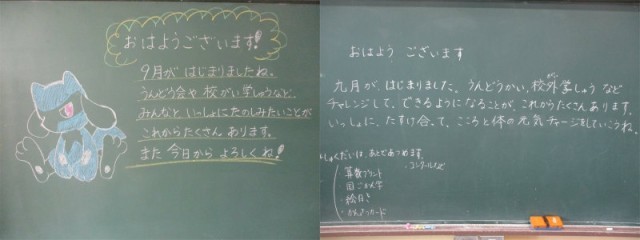 おはようございます!
9月が はじまりましたね。
うんどう会や 校がい学しゅうなど、
みんなと いっしょにたのしみたいことが
これからたくさん あります。
また 今日から よろしくね!
おはよう ございます
九月が、はじまりました。うんどうかい、校外学しゅう など
チャレンジして、できるようになることが、これからたくさん あります。
いっしょに、たすけ合って、こころと体の元気チャージをしていこうね
しゅくだいは、あとであつめます。
算数プリント
・絵日き